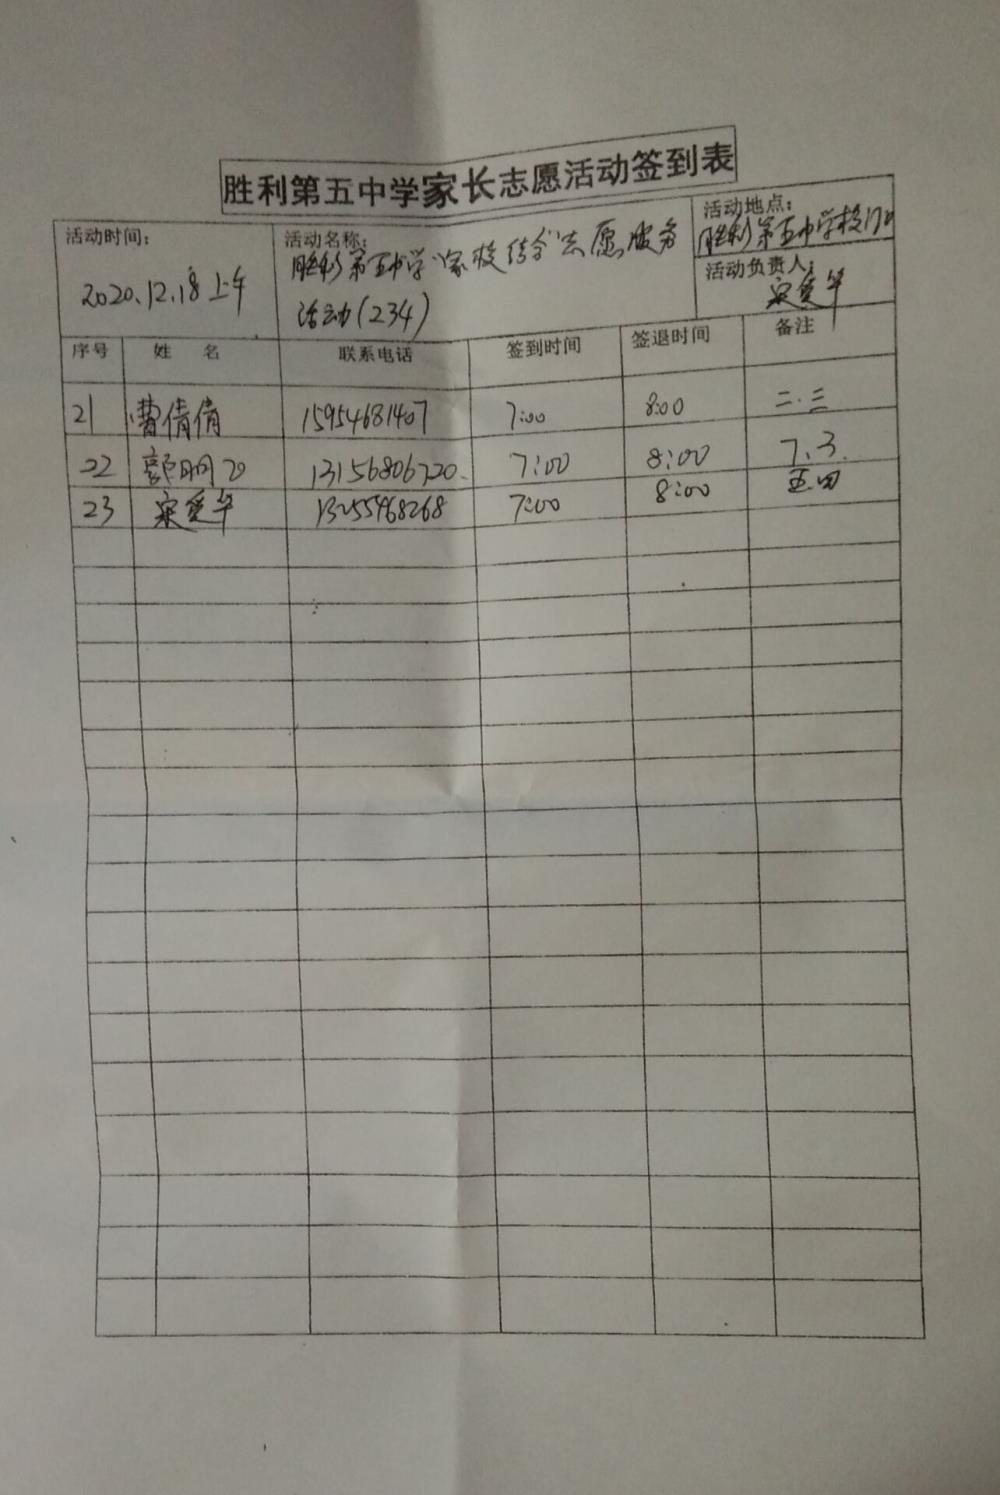 胜利第五中学家长志愿活动签到表
活动时间：
2020.12.18上午
活动名称：
胜利第五中学"家校结合"志愿服务
活动(234)
活动地点：
胜利第五中学校门口
活动负责人：
宋爱华
序号 姓 名 联系电话 签到时间 签退时间 备注
21 曹倩倩 15954681407 7:00 8:00 二.三
22 13156806720. 7:00 8:00 7.3.
23 宋爱华 13255468268 7:00 8:00 五.四